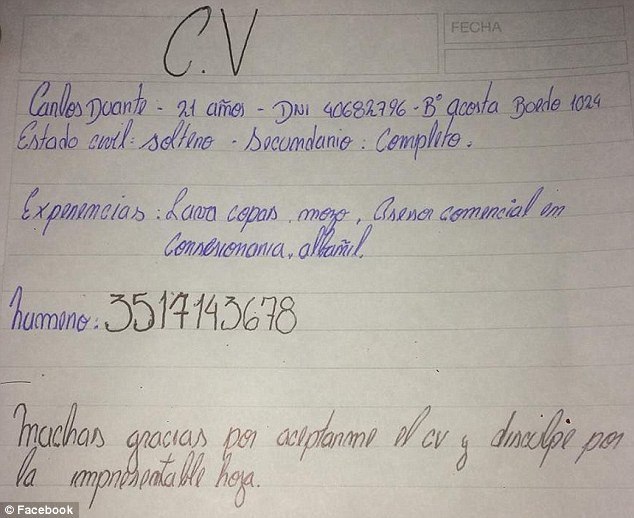 C.V
FECHA
Carlos Duarte - 21 años - DNI 40682796 - Bº acosta Boedo 1024
Estado civil: soltero - Secundario: Completo.
Experiencias: Lava copas, mozo, asesor comercial en
Consesionaria, albañil.
humero: 3517143678
muchas gracias por aceptarme el cv y disculpe por
la impresentable hoja.
© Facebook